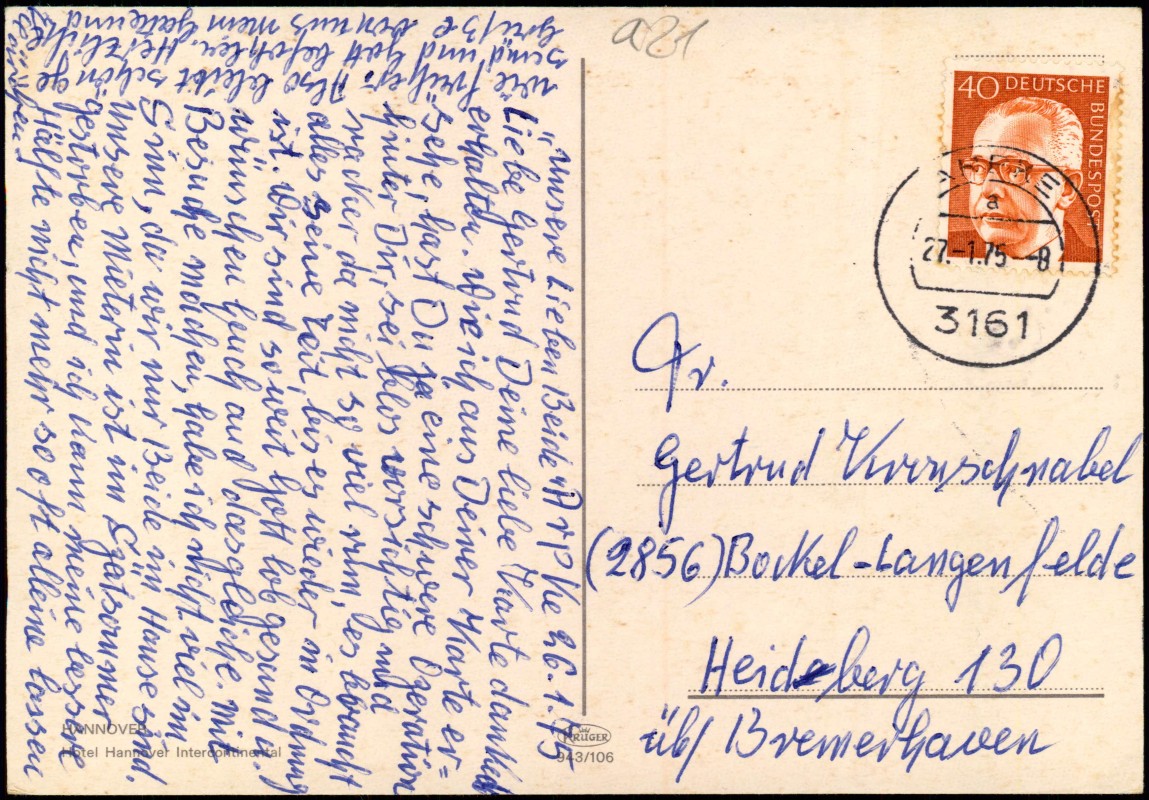 a21
40 DEUTSCHE
BUNDESPOST
ARPKE
a
27.-1.75-8
3161
Unsere lieben Beide Arpke 26.1.75
Liebe Gertrud Deine liebe Karte dankend
erhalten. Wie ich aus Deiner Karte er=
sehe, hast Du ja eine schwere Operation
hinter Dir, sei blos vorsichtig und
racker da nicht so viel rum, es braucht
alles seine Zeit, bis es wieder in Ordnung
ist. Wir sind soweit Gott lob gesund u.
wünschen Euch auch dasgleiche. mit
Besuche machen, habe ich nicht viel im
Sinn, da wir nur Beide im Hause sind.
Unsere Mieterin ist im Spätsommer
gestorben, und ich kann meine bessere
Hälfte nicht mehr so oft alleine lassen
wie früher. Also bleibt schön ge
sund und Gott befohlen. Herzliche
Grüße von uns mein Gatte und
Fr.
Gertrud Kronschnabel
(2856) Bockel-Langenfelde
Heidberg 130
üb/ Bremerhaven
HANNOVER
Hotel Hannover Intercontinental
KRÜGER
943/106